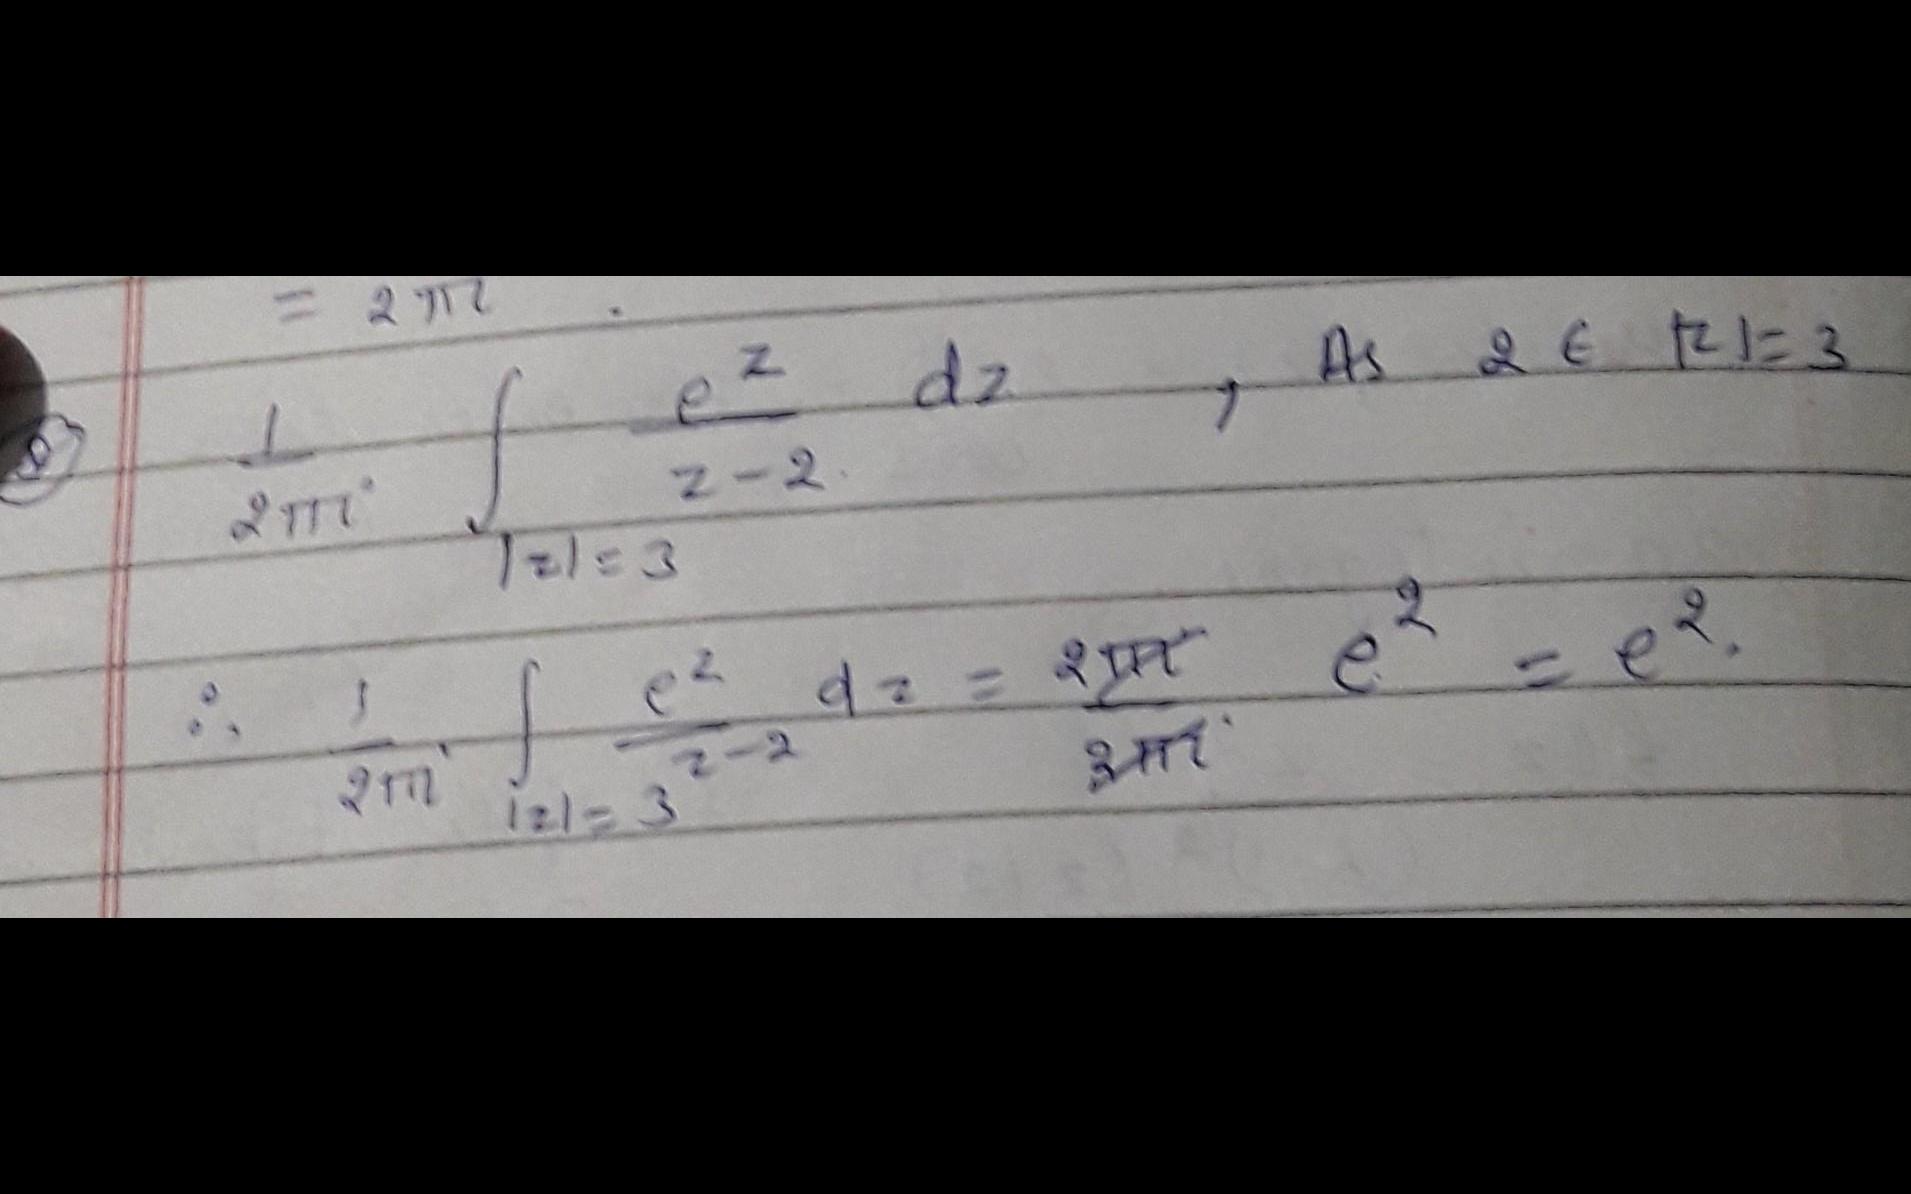 = 2πi .
② 1/2πi ∫_{|z|=3} e^z/z-2. dz , As 2 ∈ |z|=3
∴ 1/2πi ∫_{|z|=3} e^z/z-2 dz = 2πi/2πi e^2 = e^2.